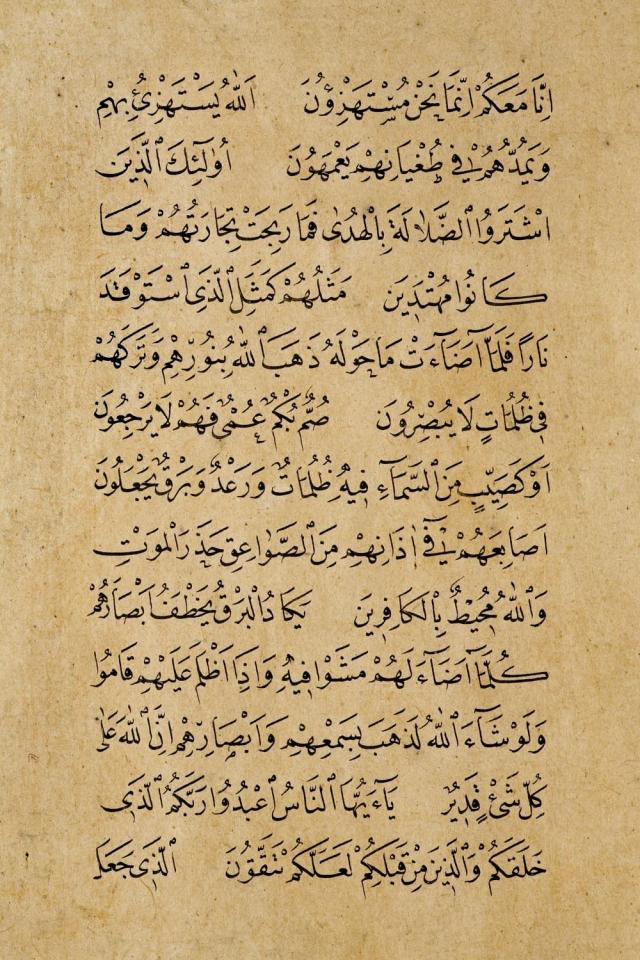 اِنَّا مَعَكُمْ اِنَّمَا نَحْنُ مُسْتَهْزِؤُنَ اَللّٰهُ يَسْتَهْزِئُ بِهِمْ
وَيَمُدُّهُمْ فٖى طُغْيَانِهِمْ يَعْمَهُونَ اُولٰٓئِكَ الَّذٖينَ
اشْتَرَوُا الضَّلَالَةَ بِالْهُدٰى فَمَا رَبِحَتْ تِجَارَتُهُمْ وَمَا
كَانُوا مُهْتَدٖينَ مَثَلُهُمْ كَمَثَلِ الَّذِى اسْتَوْقَدَ
نَارًا فَلَمَّٓا اَضَٓاءَتْ مَا حَوْلَهُ ذَهَبَ اللّٰهُ بِنُورِهِمْ وَتَرَكَهُمْ
فٖى ظُلُمَاتٍ لَا يُبْصِرُونَ صُمٌّ بُكْمٌ عُمْىٌ فَهُمْ لَا يَرْجِعُونَ
اَوْ كَصَيِّبٍ مِنَ السَّمَٓاءِ فٖيهِ ظُلُمَاتٌ وَرَعْدٌ وَبَرْقٌ يَجْعَلُونَ
اَصَابِعَهُمْ فٖٓى اٰذَانِهِمْ مِنَ الصَّوَاعِقِ حَذَرَ الْمَوْتِ
وَاللّٰهُ مُحٖيطٌ بِالْكَافِرٖينَ يَكَادُ الْبَرْقُ يَخْطَفُ اَبْصَارَهُمْ
كُلَّمَٓا اَضَٓاءَ لَهُمْ مَشَوْا فٖيهِ وَاِذَٓا اَظْلَمَ عَلَيْهِمْ قَامُوا
وَلَوْ شَٓاءَ اللّٰهُ لَذَهَبَ بِسَمْعِهِمْ وَاَبْصَارِهِمْ اِنَّ اللّٰهَ عَلٰى
كُلِّ شَىْءٍ قَدٖيرٌ يَٓا اَيُّهَا النَّاسُ اعْبُدُوا رَبَّكُمُ الَّذٖى
خَلَقَكُمْ وَالَّذٖينَ مِنْ قَبْلِكُمْ لَعَلَّكُمْ تَتَّقُونَ اَلَّذٖى جَعَلَ